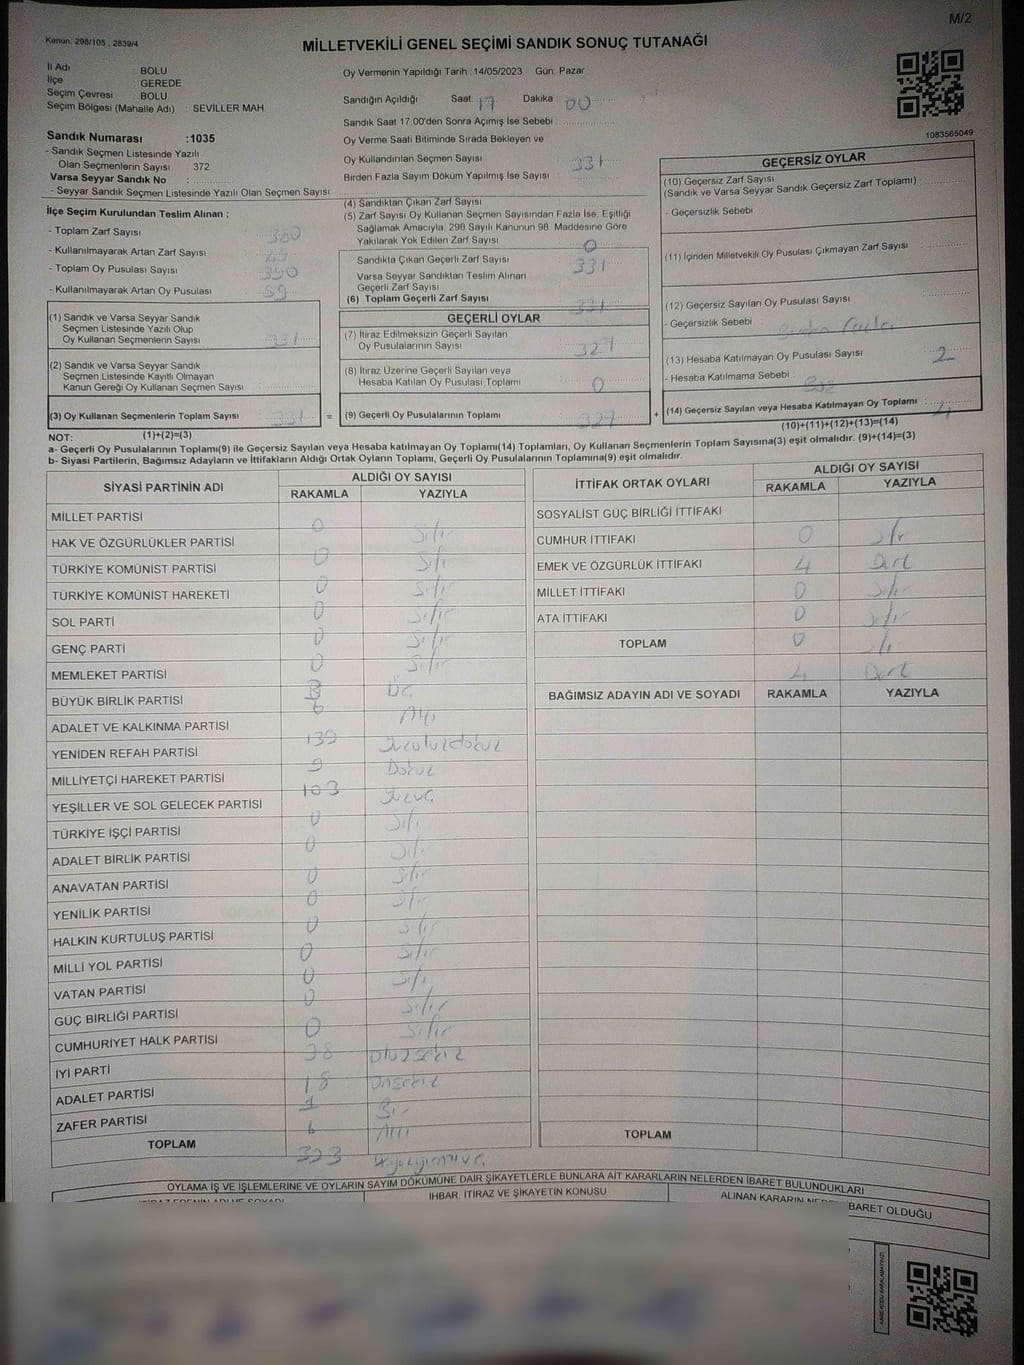 M/2
Kanun: 298/105 , 2839/4
MİLLETVEKİLİ GENEL SEÇİMİ SANDIK SONUÇ TUTANAĞI
İl Adı : BOLU
İlçe : GEREDE
Seçim Çevresi : BOLU
Seçim Bölgesi (Mahalle Adı) : SEVİLLER MAH
Oy Vermenin Yapıldığı Tarih :14/05/2023 Gün: Pazar
Sandığın Açıldığı Saat: 17 Dakika : 00
Sandık Saat 17.00'den Sonra Açımış İse Sebebi :
1083565049
Sandık Numarası :1035
- Sandık Seçmen Listesinde Yazılı
Olan Seçmenlerin Sayısı 372
Varsa Seyyar Sandık No :
- Seyyar Sandık Seçmen Listesinde Yazılı Olan Seçmen Sayısı
Oy Verme Saati Bitiminde Sırada Bekleyen ve
Oy Kullandırılan Seçmen Sayısı 331
Birden Fazla Sayım Döküm Yapılmış İse Sayısı
İlçe Seçim Kurulundan Teslim Alınan ;
- Toplam Zarf Sayısı 380
- Kullanılmayarak Artan Zarf Sayısı
- Toplam Oy Pusulası Sayısı 390
- Kullanılmayarak Artan Oy Pusulası 59
(1) Sandık ve Varsa Seyyar Sandık
Seçmen Listesinde Yazılı Olup
Oy Kullanan Seçmenlerin Sayısı 331
(2) Sandık ve Varsa Seyyar Sandık
Seçmen Listesinde Kayıtlı Olmayan
Kanun Gereği Oy Kullanan Seçmen Sayısı
(3) Oy Kullanan Seçmenlerin Toplam Sayısı 331 =
(1)+(2)=(3)
(4) Sandıktan Çıkan Zarf Sayısı
(5) Zarf Sayısı Oy Kullanan Seçmen Sayısından Fazla İse, Eşitliği
Sağlamak Amacıyla, 298 Sayılı Kanunun 98. Maddesine Göre
Yakılarak Yok Edilen Zarf Sayısı 0
Sandıkta Çıkan Geçerli Zarf Sayısı 331
Varsa Seyyar Sandıktan Teslim Alınan
Geçerli Zarf Sayısı
(6) Toplam Geçerli Zarf Sayısı 331
GEÇERLİ OYLAR
(7) İtiraz Edilmeksizin Geçerli Sayılan
Oy Pusulalarının Sayısı 327
(8) İtiraz Üzerine Geçerli Sayılan veya
Hesaba Katılan Oy Pusulası Toplamı 0
(9) Geçerli Oy Pusulalarının Toplamı 327 +
GEÇERSİZ OYLAR
(10) Geçersiz Zarf Sayısı
(Sandık ve Varsa Seyyar Sandık Geçersiz Zarf Toplamı)
- Geçersizlik Sebebi
(11) İçinden Milletvekili Oy Pusulası Çıkmayan Zarf Sayısı
(12) Geçersiz Sayılan Oy Pusulası Sayısı
- Geçersizlik Sebebi :
(13) Hesaba Katılmayan Oy Pusulası Sayısı 2
- Hesaba Katılmama Sebebi :
(14) Geçersiz Sayılan veya Hesaba Katılmayan Oy Toplamı : 4
(10)+(11)+(12)+(13)=(14)
NOT:
a- Geçerli Oy Pusulalarının Toplamı(9) ile Geçersiz Sayılan veya Hesaba katılmayan Oy Toplamı(14) Toplamları, Oy Kullanan Seçmenlerin Toplam Sayısına(3) eşit olmalıdır. (9)+(14)=(3)
b- Siyasi Partilerin, Bağımsız Adayların ve İttifakların Aldığı Ortak Oyların Toplamı, Geçerli Oy Pusulalarının Toplamına(9) eşit olmalıdır.
SİYASİ PARTİNİN ADI ALDIĞI OY SAYISI
RAKAMLA YAZIYLA
MİLLET PARTİSİ 0 Sıfır
HAK VE ÖZGÜRLÜKLER PARTİSİ 0 Sıfır
TÜRKİYE KOMÜNİST PARTİSİ 0 Sıfır
TÜRKİYE KOMÜNİST HAREKETİ 0 Sıfır
SOL PARTİ 0 Sıfır
GENÇ PARTİ 0 Sıfır
MEMLEKET PARTİSİ 3 Üç
BÜYÜK BİRLİK PARTİSİ 6 Altı
ADALET VE KALKINMA PARTİSİ 139 Yüzotuzdokuz
YENİDEN REFAH PARTİSİ 9 Dokuz
MİLLİYETÇİ HAREKET PARTİSİ 103 Yüzüç
YEŞİLLER VE SOL GELECEK PARTİSİ 0 Sıfır
TÜRKİYE İŞÇİ PARTİSİ 0 Sıfır
ADALET BİRLİK PARTİSİ 0 Sıfır
ANAVATAN PARTİSİ 0 Sıfır
YENİLİK PARTİSİ 0 Sıfır
HALKIN KURTULUŞ PARTİSİ 0 Sıfır
MİLLİ YOL PARTİSİ 0 Sıfır
VATAN PARTİSİ 0 Sıfır
GÜÇ BİRLİĞİ PARTİSİ 0 Sıfır
CUMHURİYET HALK PARTİSİ 38 Otuzsekiz
İYİ PARTİ 18 Onsekiz
ADALET PARTİSİ 1 Bir
ZAFER PARTİSİ 6 Altı
TOPLAM 323
İTTİFAK ORTAK OYLARI ALDIĞI OY SAYISI
RAKAMLA YAZIYLA
SOSYALİST GÜÇ BİRLİĞİ İTTİFAKI
CUMHUR İTTİFAKI 0 Sıfır
EMEK VE ÖZGÜRLÜK İTTİFAKI 4 Dört
MİLLET İTTİFAKI 0 Sıfır
ATA İTTİFAKI 0 Sıfır
TOPLAM 0 Sıfır
4 Dört
BAĞIMSIZ ADAYIN ADI VE SOYADI RAKAMLA YAZIYLA
TOPLAM
OYLAMA İŞ VE İŞLEMLERİNE VE OYLARIN SAYIM DÖKÜMÜNE DAİR ŞİKAYETLERLE BUNLARA AİT KARARLARIN NELERDEN İBARET BULUNDUKLARI
İHBAR, İTİRAZ VE ŞİKAYETİN KONUSU
ALINAN KARARIN İBARET OLDUĞU